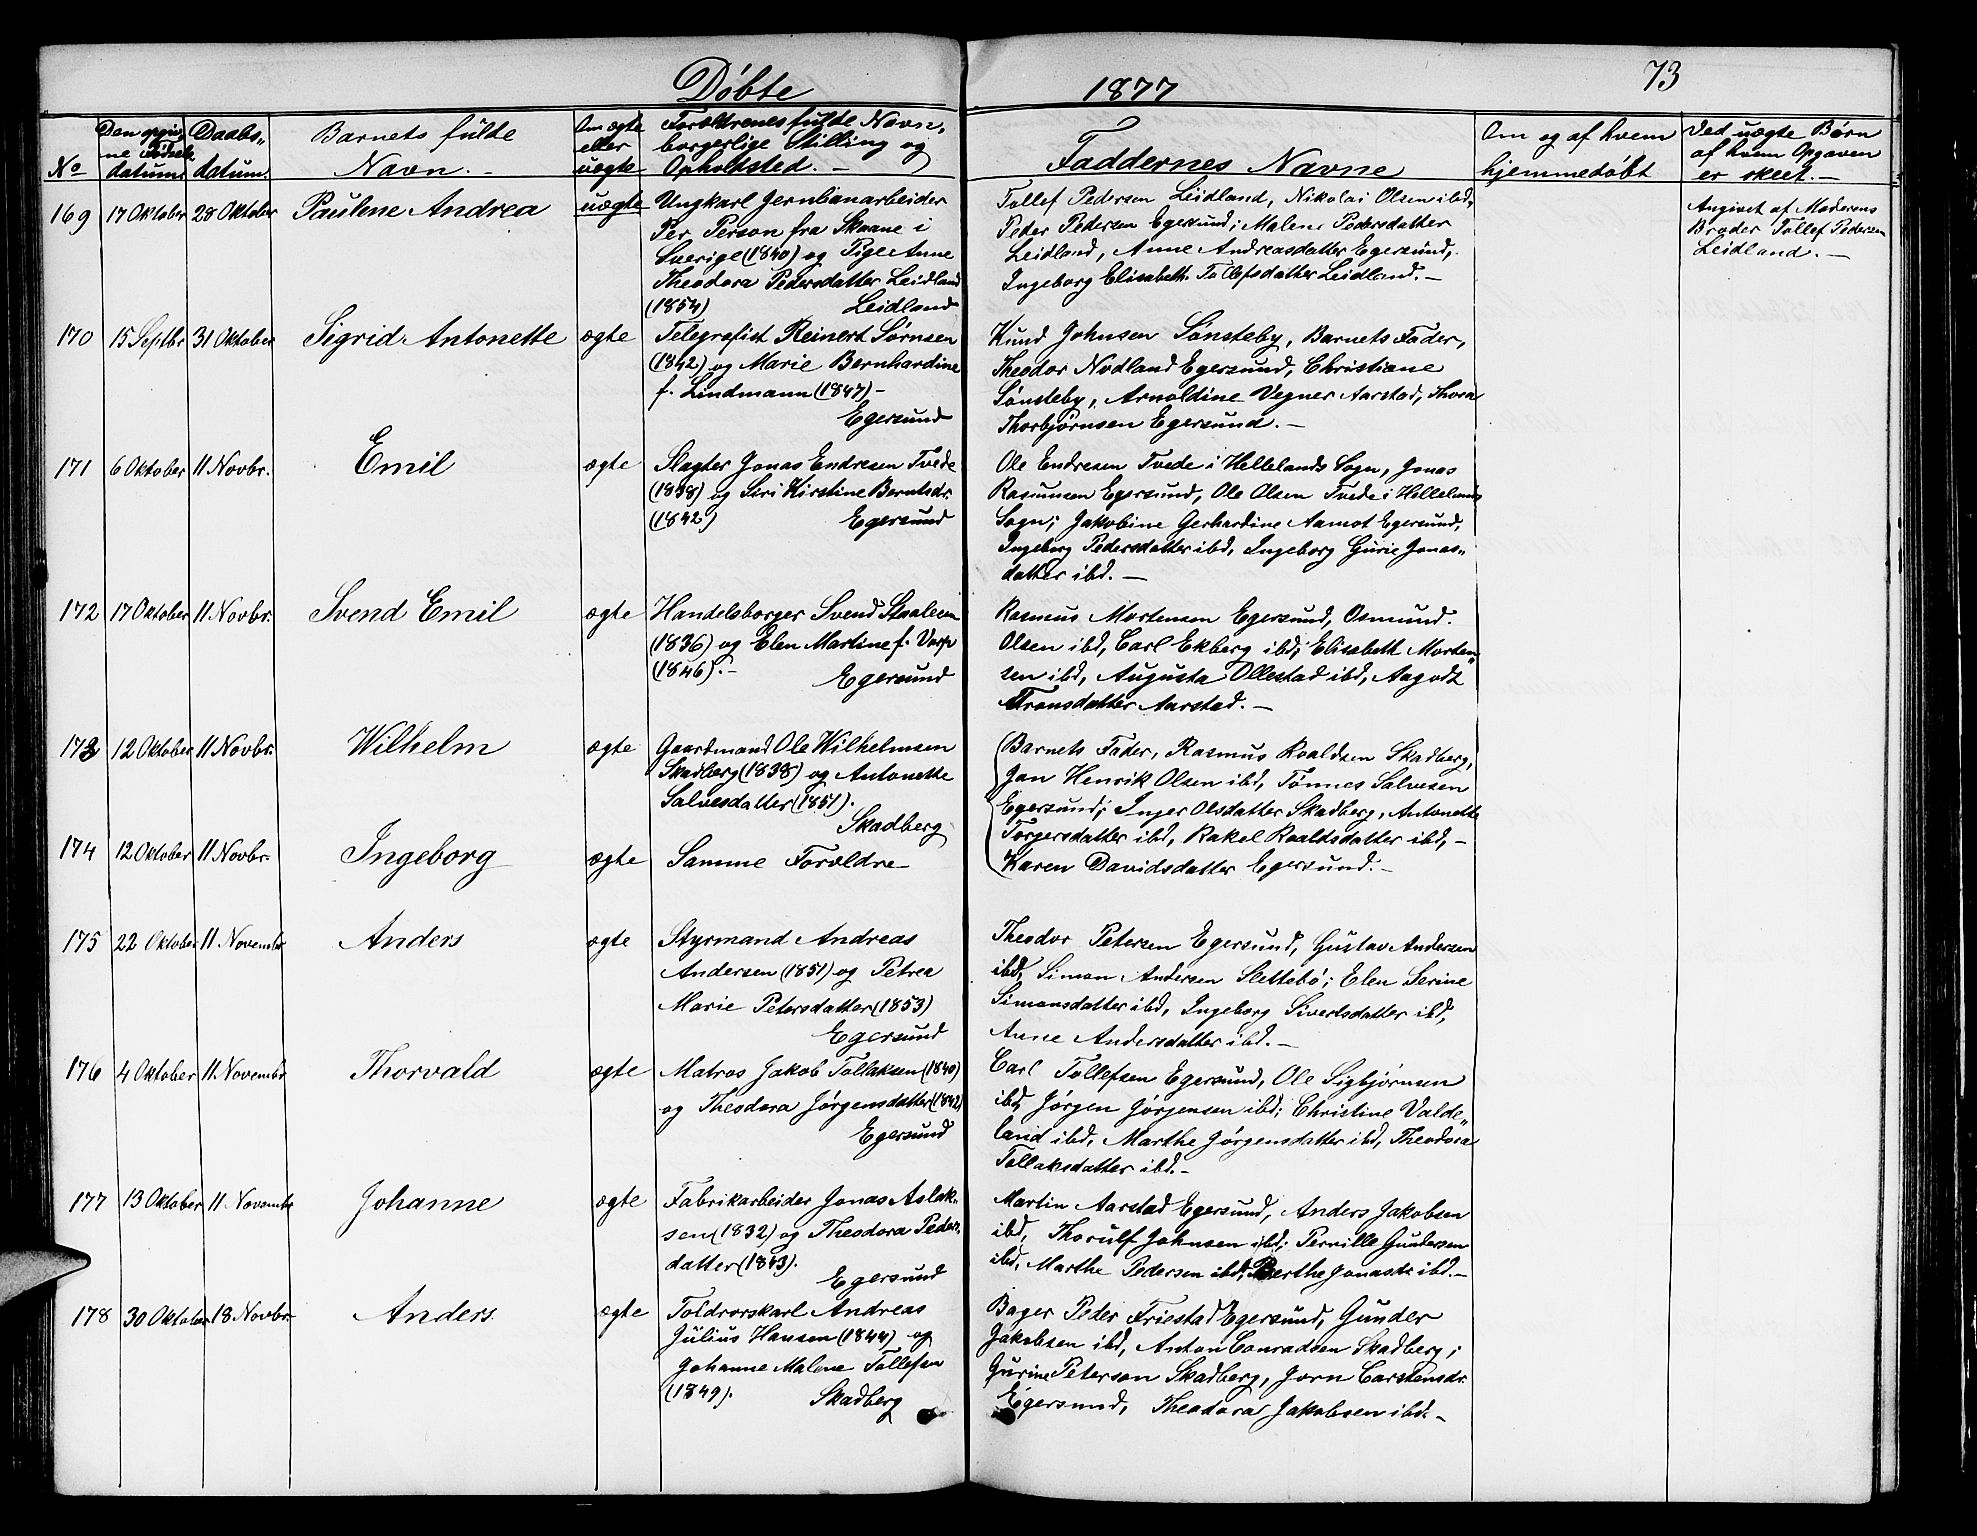 Døbte 1877 73
No
Den opgiv
ne Fødsels
datum
Daabs„
datum
Barnets fulde
Navn. -
Om ægte
eller
uægte
Forældrenes fulde Navn,
borgerlige Stilling og
Opholdsted. -
Faddernes Navne
Om og af hvem
hjemmedøbt
Ved uægte Børn
af hvem Opgaven
er skeet. -
169 17 Oktober 28 Oktober Paulene Andrea uægte
Ungkarl Jernbanarbeider
Per Person fra Skaane i
Sverige (1840) og Pige Anne
Theodora Pedersdatter Leidland
(1854) Leidland
Tollef Pedersen Leidland, Nikolai Olsen ibd,
Peder Pedersen Egersund; Malene Pedersdatter
Leidland, Anne Andreasdatter Egersund,
Ingeborg Elisabeth Tollefsdatter Leidland. -
Angivet af Moderens
Broder Tollef Pedersen
Leidland. -
170 15 Septbr 31 Oktober Sigrid Antonette ægte
Telegrafist Reinert Sørnsen
(1842) og Marie Bernhardine
f. Lindmann (1847) -
Egersund
Knud Johnsen Sønsteby, Barnets Fader,
Theodor Nodland Egersund, Christiane
Sønsteby, Arnoldine Vegner Aarstad, Thora
Thorbjørnsen Egersund. -
171 6 Oktober 11 Novbr. Emil ægte
Slagter Jonas Endresen Tvede
(1838) og Siri Kirstine Berntsdr.
(1842) Egersund
Ole Endresen Tvede i Hellelands Sogn, Jonas
Rasmusen Egersund, Ole Olsen Tvede i Hellelands
Sogn; Jakobine Gerhardine Aamot Egersund,
Ingeborg Pedersdatter ibd, Ingeborg Gurie Jonas„
datter ibd. -
172 17 Oktober 11 Novbr. Svend Emil ægte
Handelsborger Svend Staalesen
(1836) og Elen Martine f.
(1846). - Egersund
Rasmus Mortensen Egersund, Osmund
Olsen ibd, Carl Ekberg ibd; Elisabeth Morten„
sen ibd, Augusta Ollestad ibd, Aagodt
Tronsdatter Aarstad. -
173 12 Oktober 11 Novbr. Wilhelm ægte
Gaardmand Ole Wilhelmsen
Skadberg (1838) og Antonette
Salvesdatter (1851).
Skadberg
Barnets Fader, Rasmus Roaldsen Skadberg,
Jan Henrik Olsen ibd, Tønnes Salvesen
Egersund; Inger Olsdatter Skadberg, Antonette
Torgersdatter ibd, Rakel Roaldsdatter ibd, -
Karen Davidsdatter Egersund. -
174 12 Oktober 11 Novbr. Ingeborg ægte
Samme Forældre
175 22 Oktober 11 Novembr Anders ægte
Styrmand Andreas
Andersen (1851) og Petrea
Marie Petersdatter (1853)
Egersund
Theodor Petersen Egersund, Gustav Andersen
ibd, Simon Andersen Slettebø; Elen Serine
Simonsdatter ibd, Ingeborg Sivertsdatter ibd,
Anne Andersdatter ibd. -
176 4 Oktober 11 Novembr Thorvald ægte
Matros Jakob Tollaksen (1840)
og Theodora Jørgensdatter (1842)
Egersund
Carl Tollefsen Egersund, Ole Sigbjørnsen
ibd, Jørgen Jørgensen ibd; Christine Valde„
land ibd, Marthe Jørgensdatter ibd, Theodora
Tollaksdatter ibd. -
177 13 Oktober 11 Novembr Johanne ægte
Fabrikarbeider Jonas Aslak„
sen (1832) og Theodora Peders„
datter (1843).
Egersund
Martin Aarstad Egersund, Anders Jakobsen
ibd, Thorulf Johnsen ibd; Pernille Gundersen
ibd, Marthe Pedersen ibd, Berthe Jonasdr ibd. -
178 30 Oktober 18 Novbr. Anders ægte
Toldrorskarl Andreas
Julius Hansen (1844) og
Johanne Malene Tollefsen
(1849). Skadberg
Bager Peder Friestad Egersund, Gunder
Jakobsen ibd, Anton Conradsen Skadberg;
Gurine Peterson Skadberg, Jorn Carstensdr.
Egersund, Theodora Jakobsen ibd. -